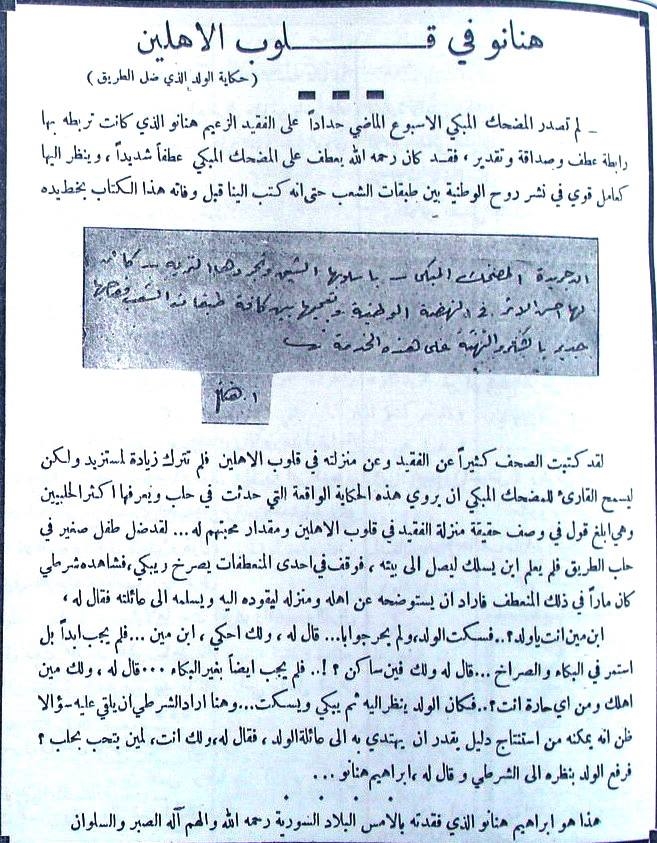 هنانو في قلوب الاهلين
( حكاية الولد الذي ضل الطريق )
ـ لم تصدر المضحك المبكي الاسبوع الماضي حداداً على الفقيد الزعيم هنانو الذي كانت تربطه بها
رابطة عطف وصداقة وتقدير ، فقد كان رحمه الله يعطف على المضحك المبكي عطفاً شديداً ، وينظر اليها
كعامل قوي في نشر روح الوطنية بين طبقات الشعب حتى انه كتب الينا قبل وفاته هذا الكتاب بخط يده
المضحك المبكي ـ باسلوبها
لها احسن الاثر في النهضة الوطنية بين كافة طبقات الشعب
جدير بالشكر والتهنئة على هذه الخدمة
لقد كتبت الصحف كثيراً عن الفقيد وعن منزلته في قلوب الاهلين فلم تترك زيادة لمستزيد ولكن
ليسمح القارئ للمضحك المبكي ان يروي هذه الحكاية الواقعة التي حدثت في حلب ويعرفها اكثر الحلبيين
وهي ابلغ قول في وصف حقيقة منزلة الفقيد في قلوب الاهلين ومقدار محبتهم له ... لقد ضل طفل صغير في
حلب الطريق فلم يعلم اين يسلك ليصل الى بيته ، فوقف في احدى المنعطفات يصرخ ويبكي، فشاهده شرطي
كان ماراً في ذلك المنعطف فاراد ان يستوضحه عن اهله ومنزله ليقوده اليه ويسلمه الى عائلته فقال له ،
ابن مين انت ياولد؟.. فسكت الولد، ولم يحر جوابا... قال له ، ولك احكي ، ابن مين ... فلم يجب ابداً بل
استمر في البكاء والصراخ ... قال له ولك فين ساكن ؟!.. فلم يجب ايضاً بغير البكاء ... قال له ، ولك مين
اهلك ومن اي حارة انت؟.. فكان الولد ينظر اليه ثم يبكي ويسكت... وهنا اراد الشرطي ان ياقي عليه سؤالا
ظن انه يمكنه من استنتاج دليل يقدر ان يهتدي به الى عائلة الولد ، فقال له، ولك انت، لمين بتحب بحلب ؟
فرفع الولد بنظره الى الشرطي و قال له ، ابراهيم هنانو ...
هذا هو ابراهيم هنانو الذي فقدته بالامس البلاد السورية رحمه الله والهم آله الصبر والسلوان